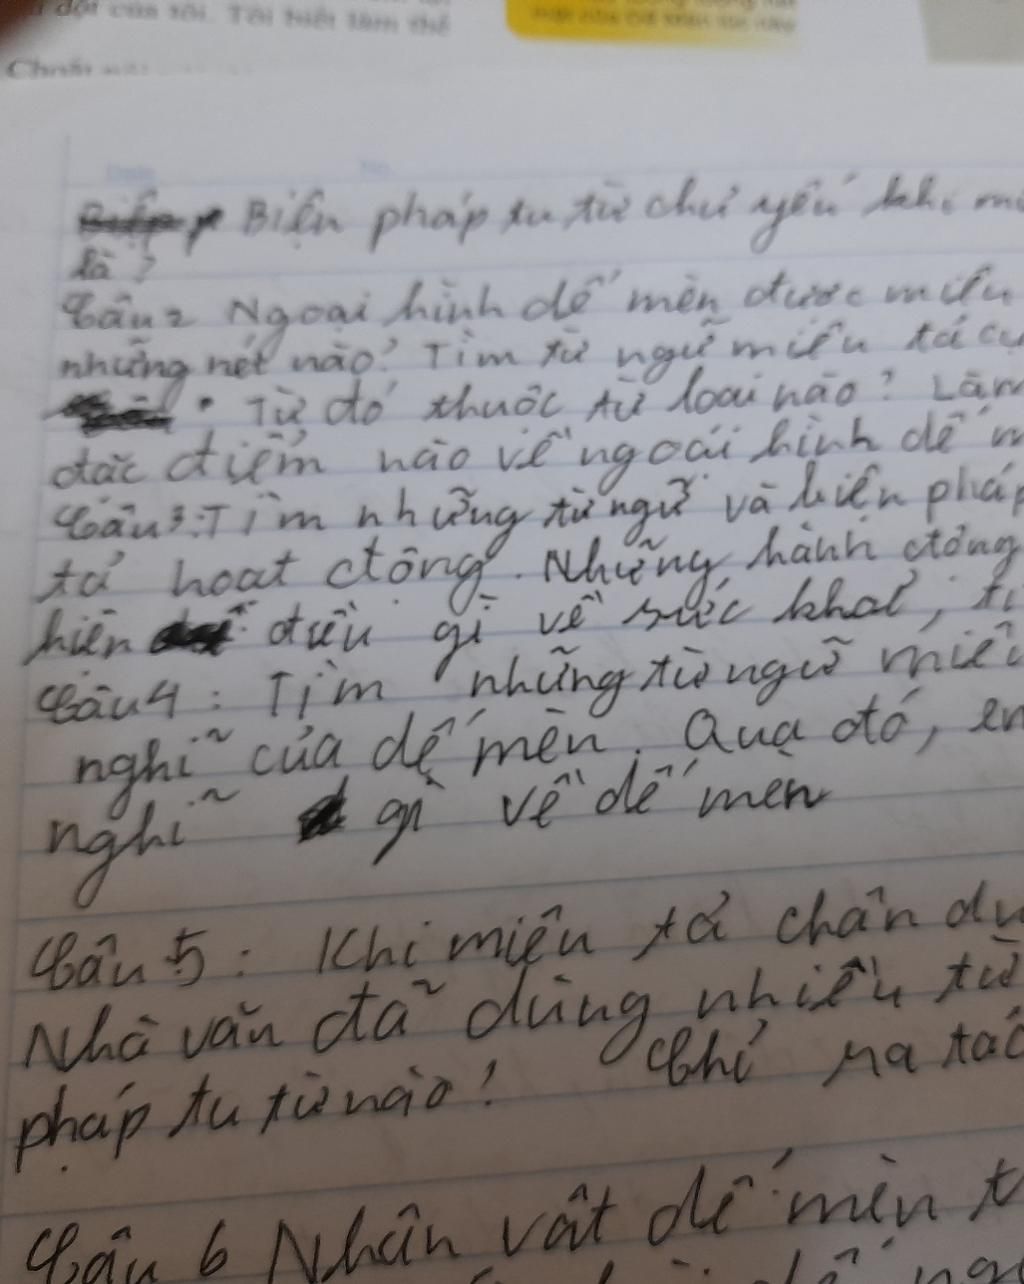 đôi của tôi. Tôi biết làm thế
Biện pháp tu từ chủ yếu khi
là?
Câu 2 Ngoại hình dế mèn được miêu
những nét nào? Tìm từ ngữ miêu tả
Từ đó thuộc từ loại nào? Làm
đặc điểm nào về ngoại hình dế
Câu 3: Tìm những từ ngữ và biện pháp
tả hoạt động. Những hành động
hiện điều gì về sức khoẻ,
Câu 4: Tìm những từ ngữ
nghĩ của dế mèn. Qua đó,
nghĩ gì về dế mèn
Câu 5: Khi miêu tả chân
Nhà văn đã dùng nhiều từ
pháp tu từ nào? Chỉ ra
Câu 6 Nhân vật dế mèn